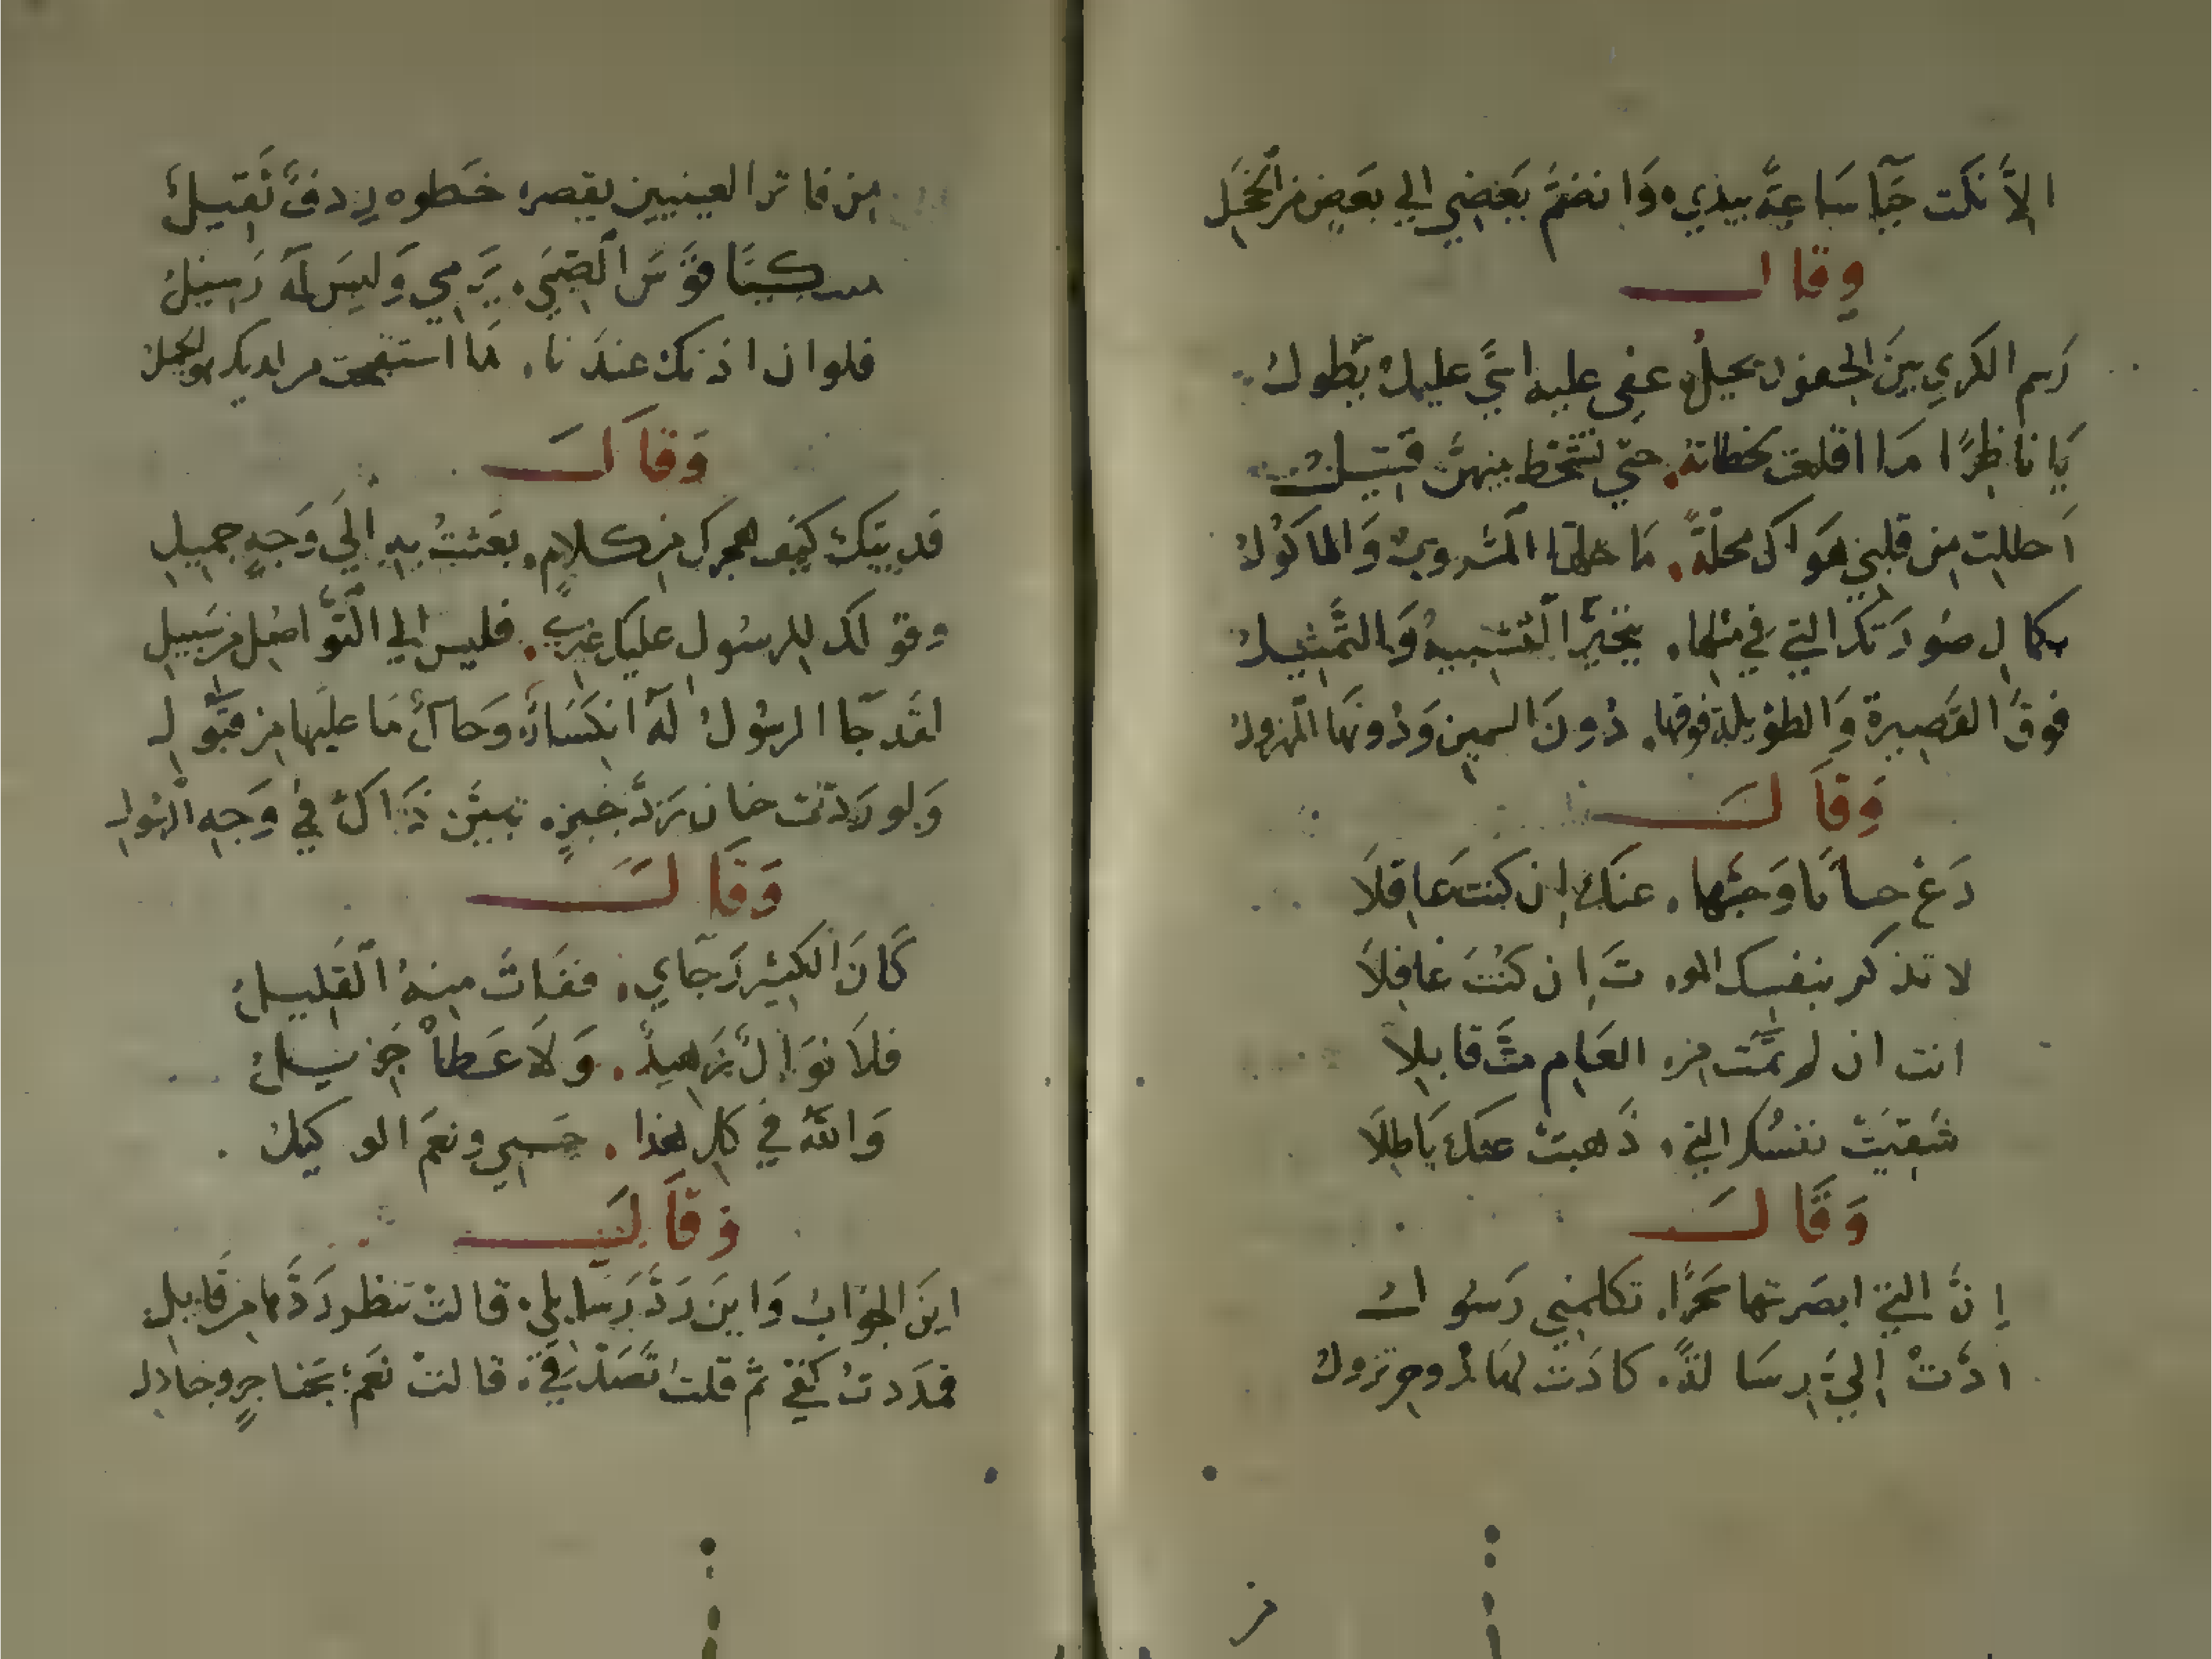 الا نكت حبا ساعة بيدي وانضم بعضي الي بعض من الخجل
وقال
رسم الكري بين الجفون محيل عفى عليه بكى عليك يطول
يا ناظرا ما اقلعت لحظاته حتي تشحط بينهن قتيل
احللت من قلبي هواك محلة ما حلها المشروب والماكول
بكمال صورتك التي في مثلها يتحير التشبيه والتمثيل
فوق القصيرة والطويلة فوقها دون السمين ودونها المهزول
وقال
دع حسانا وحبها عنك ان كنت عاقلا
لا تذكر بنفسك المو ت ان كنت غافلا
انت ان لم تمت من العام مت قابلا
شقيت نفسك التي ذهبت عنك باطلا
وقال
ان التي ابصرتها سحرا تكلمني رسول
ادت الي رسالة كادت لها الروح تزول
من فاتر العينين يقصر خطوه ردف ثقيل
متنكبا قوس الصبي يرمي وليس له رسيل
فلو ان اذنك عندنا
وقال
فديتك كيف هجرك من كلام بعثت به الي وجه جميل
وقولك للرسول عليك غيري فليس الي التواصل من سبيل
لقد جا الرسول له انكسار وحال ما عليها من قبول
ولو ردت جنان برد خير تبين ذاك في وجه الرسول
وقال
كان الكثير رجاي ففات منه القليل
فلا نوال زهيد ولا عطا جزيل
والله في كل هذا حسبي ونعم الوكيل
وقال
اين الجواب واين رد رسايلي قالت تنظر ردها من قابل
فمددت كفي ثم قلت تصدقي قالت نعم بحناجر وجنادل